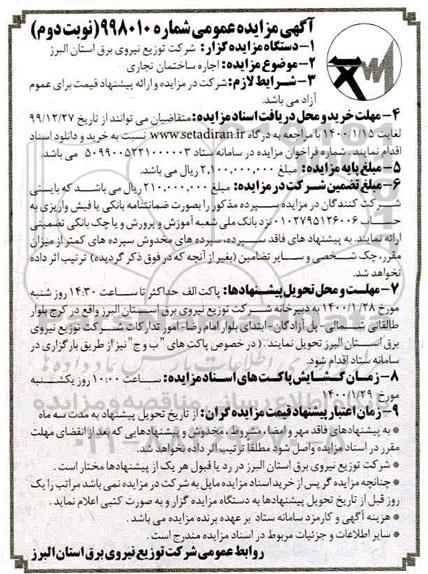 آگهی مزایده عمومی شماره ۹۹۸۰۱۰ (نوبت دوم)
۱- دستگاه مزایده گزار: شرکت توزیع نیروی برق استان البرز
۲- موضوع مزایده: اجاره ساختمان تجاری
۳- شرایط لازم: شرکت در مزایده و ارائه پیشنهاد قیمت برای عموم
آزاد می باشد.
۴- مهلت خرید و محل دریافت اسناد مزایده: متقاضیان می توانند از تاریخ ۹۹/۱۲/۲۷
لغایت ۱۴۰۰/۱/۱۵ با مراجعه به درگاه www.setadiran.ir نسبت به خرید و دانلود اسناد
اقدام نمایند. شماره فراخوان مزایده در سامانه ستاد ۵۰۹۹۰۰۵۲۲۱۰۰۰۰۰۳ می باشد.
۵- مبلغ پایه مزایده: مبلغ ۲,۱۰۰,۰۰۰,۰۰۰ ریال می باشد.
۶- مبلغ تضمین شرکت در مزایده: مبلغ ۲۱۰,۰۰۰,۰۰۰ ریال می باشد که بایستی
شرکت کنندگان در مزایده سپرده مذکور را بصورت ضمانتنامه بانکی یا فیش واریزی به
حساب ۰۱۰۲۷۹۵۱۲۶۰۰۶ نزد بانک ملی شعبه آموزش و پرورش و یا چک بانکی تضمینی
ارائه نمایند. به پیشنهاد های فاقد سپرده، سپرده های مخدوش سپرده های کمتر از میزان
مقرر، چک شخصی و سایر تضامین (بغیر از آنچه که در فوق ذکر گردیده) ترتیب اثر داده
نخواهد شد.
۷- مهلت و محل تحویل پیشنهادها: پاکت الف حداکثر تا ساعت ۱۴:۳۰ روز شنبه
مورخ ۱۴۰۰/۱/۲۸ به دبیرخانه شرکت توزیع نیروی برق استان البرز واقع در کرج بلوار
طالقانی شمالی- پل آزادگان- ابتدای بلوار امام رضا- امور تدارکات شرکت توزیع نیروی
برق استان البرز تحویل نمایند. (در خصوص پاکت های "ب و ج" نیز از طریق بارگزاری در
سامانه ستاد اقدام شود.
۸- زمان گشایش پاکت های اسناد مزایده: ساعت ۱۰:۰۰ روز یکشنبه
مورخ ۱۴۰۰/۱/۲۹
۹- زمان اعتبار پیشنهاد قیمت مزایده گران: از تاریخ تحویل پیشنهاد به مدت سه ماه
* به پیشنهادهای فاقد مهر و امضا، مشروط، مخدوش و پیشنهادهایی که بعد از انقضای مهلت
مقرر در اسناد مزایده واصل شود مطلقا ترتیب اثر داده نخواهد شد.
* شرکت توزیع نیروی برق استان البرز در رد یا قبول هر یک از پیشنهادها مختار است.
* چنانچه مزایده گر پس از خرید اسناد مزایده مایل به شرکت در مزایده نمی باشد مراتب را یک
روز قبل از تاریخ تحویل پیشنهادها به دستگاه مزایده گزار و به صورت کتبی اعلام نماید.
* هزینه آگهی و کارمزد سامانه ستاد بر عهده برنده مزایده می باشد.
* سایر اطلاعات و جزئیات مربوط در اسناد مزایده مندرج است.
روابط عمومی شرکت توزیع نیروی برق استان البرز